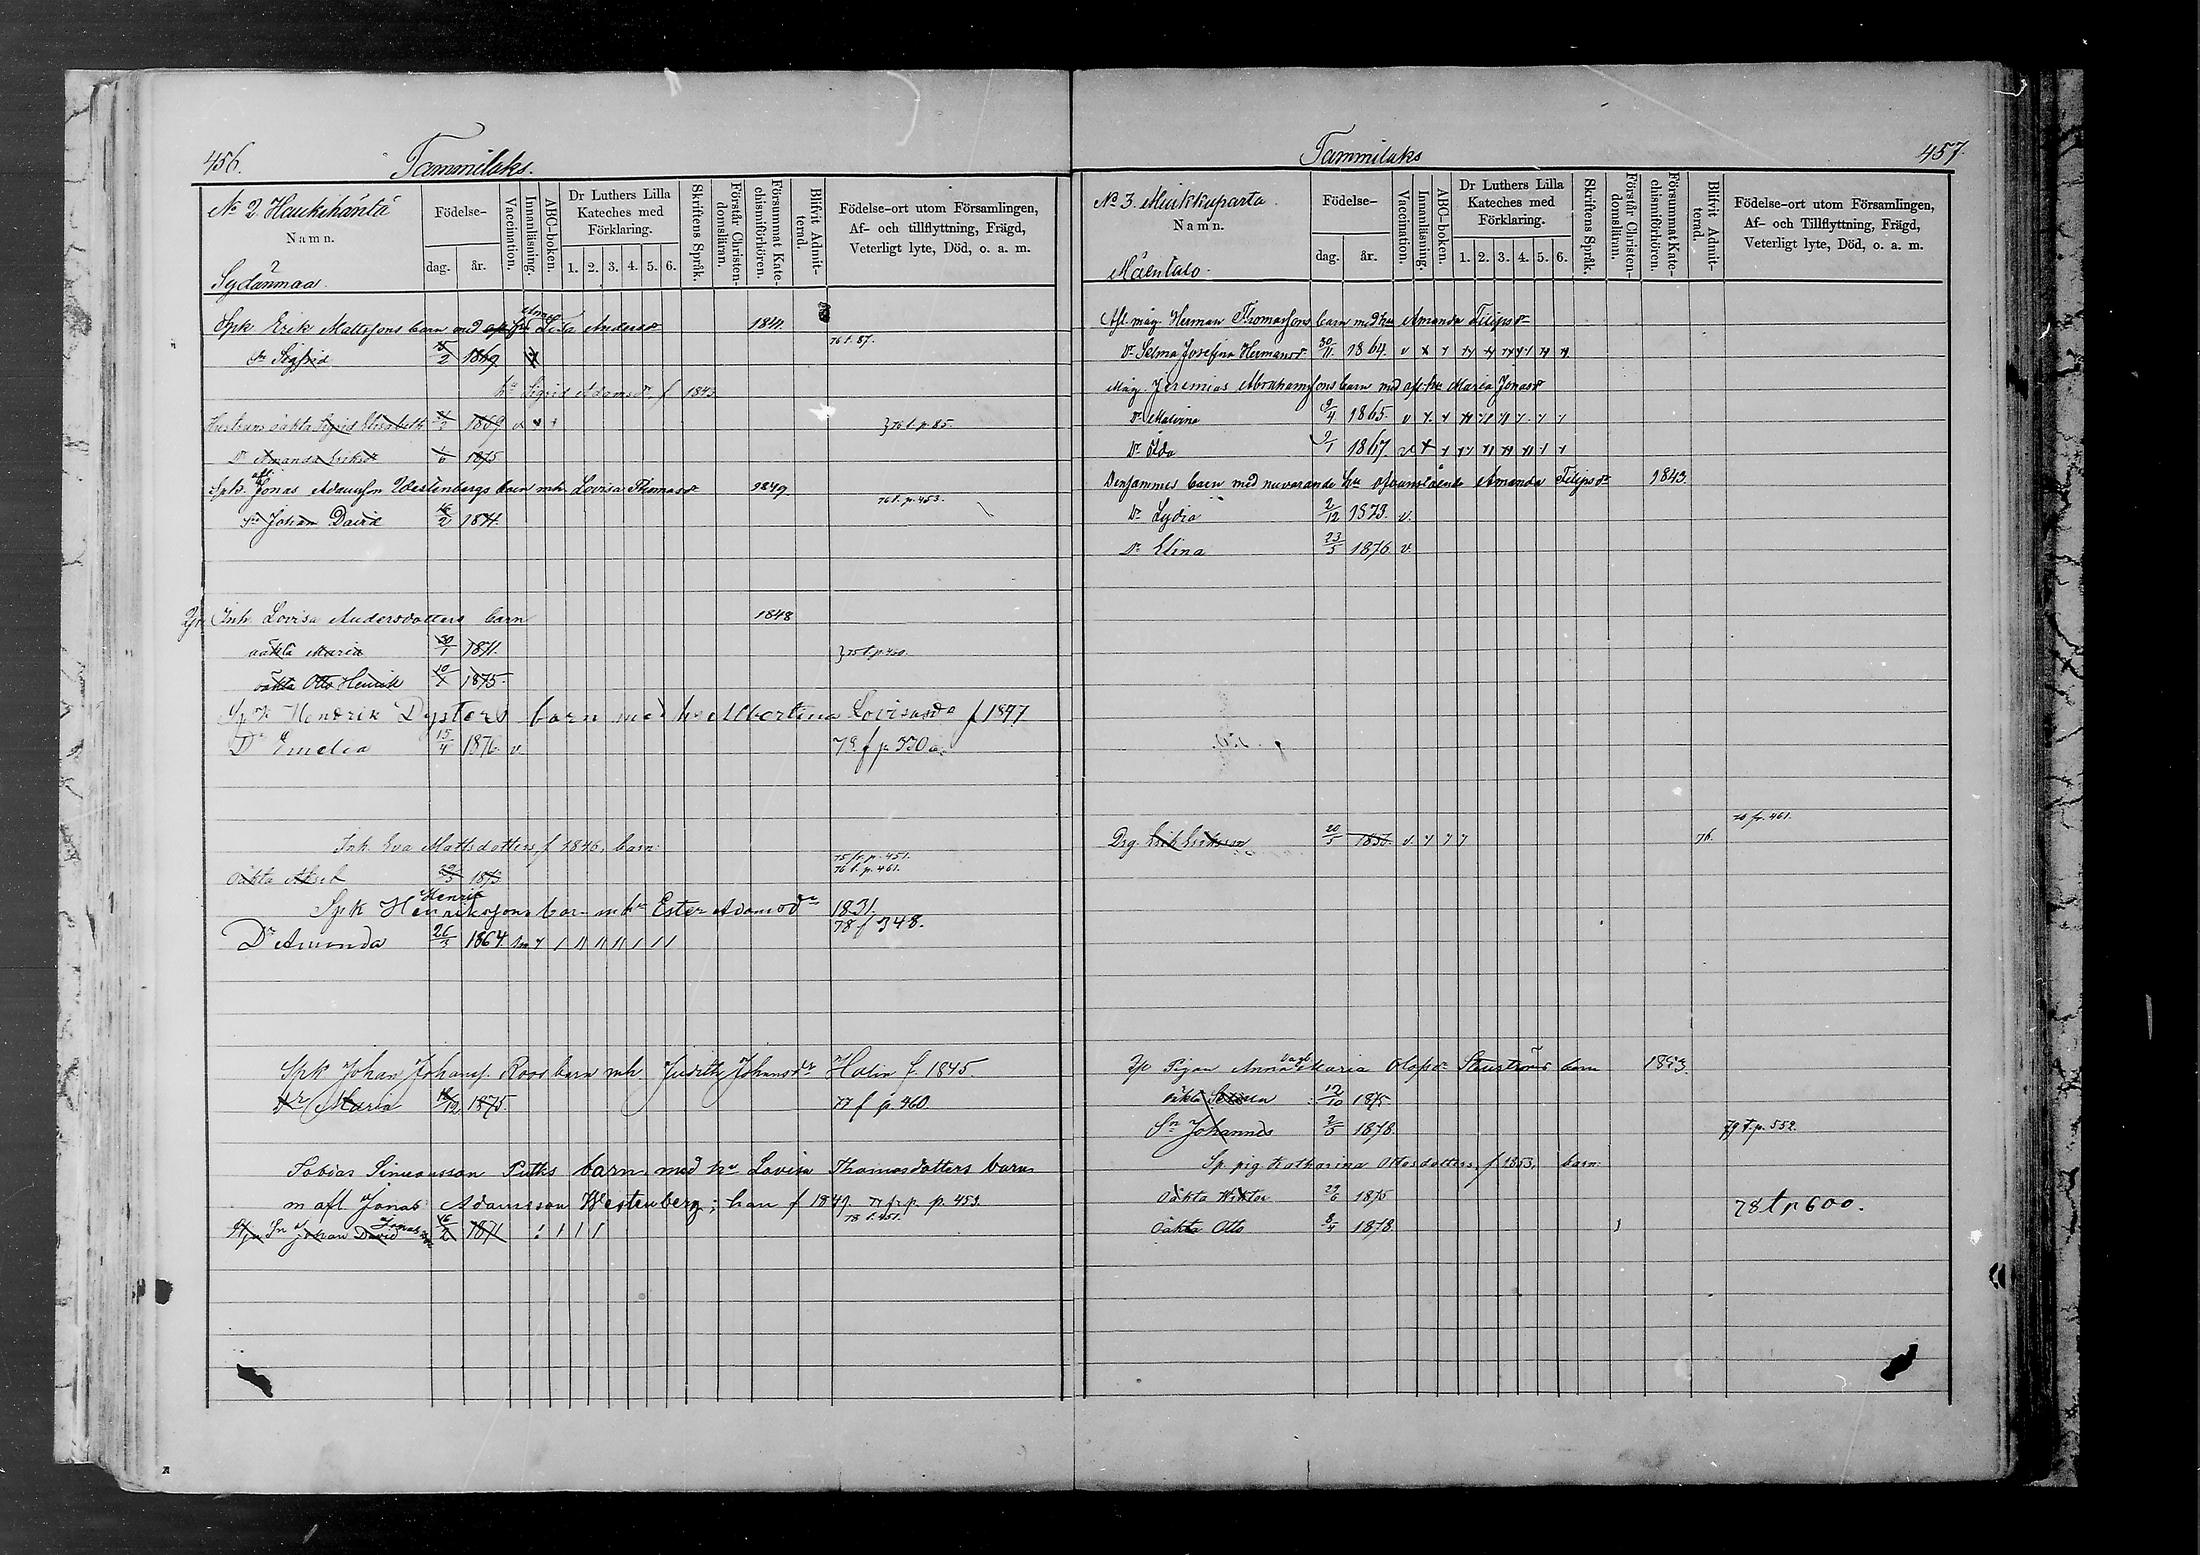 456.
Tammilaks.
No 2. Haukihäntä
Namn.
Sydänmaa.
Födelse-
dag. år.
Vaccination.
Innanläsning.
ABC-boken.
Dr Luthers Lilla Kateches med Förklaring.
1. 2. 3. 4. 5. 6.
Skriftens Språk.
Förstår Christendomslärnn.
Försummat Katechismiförhören.
Blifvit Admitterad.
Födelse-ort utom Församlingen,
Af- och tillflyttning, Frägd,
Veterligt lyte, Död, o. a. m.
Spk Erik Mattssons barn med Lisa Andersdr 184
76 t. 87.
Sn Sigfrid 2 1869
hu Sigrid Adamsdr f 1843
Hustruns oäkta Sigrid Elisabeth 2 1869 v
76 t. p. 85.
Dr Amanda Eriksdr 6 1875
Spk. afl. Jonas Adamsson Westenbergs barn mh. Lovisa Thomasdr 1849
76 t. p. 453.
Sn Johan David 16/2 1871.
Inh. Lovisa Andersdotters barn 1848
oäkta Maria 30/1 1871.
75 t. p. 460.
oäkta Otto Henrik 10 1875.
Spk Hendrik Dysters barn med hu Albertina Lovisasdr f 1847
Dr Emelia 15/4 1876. v.
79 f p 550 a.
Inh. Eva Mattsdotters f 1846, barn:
75 fr. p. 451.
oäkta Aksel 1873
76 t. p. 461.
Henrik
Spk Henrikssons bar- m hu Ester Adamsdr 1831.
78 f 348.
Dr Amanda 26/3 1864
Spk Johan Johanss. Roos barn mh. Judith Johansdr Halin f. 1845.
Dr Maria 12 1875.
77 f p. 460.
Tobias Simonsson Putks barn med hu Lovisa Thomasdotters barn
m afl Jonas Adamsson Westenberg; han f 1849. 77 fr p. p. 453.
78 t. 451.
Sn Johan David Jonasson 16/2 1871
457.
Tammilaks
No 3. Miekkaparta.
Namn.
Mäentalo.
Födelse-
dag. år.
Vaccination.
Innanläsning.
ABC-boken.
Dr Luthers Lilla Kateches med Förklaring.
1. 2. 3. 4. 5. 6.
Skriftens Språk.
Förstår Christendomslärnn.
Försummat Katechismiförhören.
Blifvit Admitterad.
Födelse-ort utom Församlingen,
Af- och Tillflyttning, Frägd,
Veterligt lyte, Död, o. a. m.
Afl. måg. Herman Thomassons barn med hu Amanda Filipsdr
Dr Selma Josefina Hermansdr 30/11. 1864. v
Måg. Jeremias Abrahamssons barn med afl. hu Maria Jonasdr
Dr Malvina 9/4 1865. v
Dr Alda 9/1 1867. v
Densammes barn med nuvarande hu ofvanstående Amanda Filipsdr 1843.
Dr Lydia 2/12 1873. v.
Dr Elina 23/5 1876 v.
76 fr. 461.
Drg. Erik Eriksson 20/5 1856. v 76.
Ip Pigan Anna Maria Olofsdr Stenströms barn 1853.
oäkta Selma 12/10 1875
Sn Johannes 2/5 1878.
79 t. p. 552.
Sp. pig. Katharina Ottosdotters, f 1853, barn:
Oäkta Wiktor 29/6 1875
78 t p 600.
Oäkta Otto 8/4 1878.